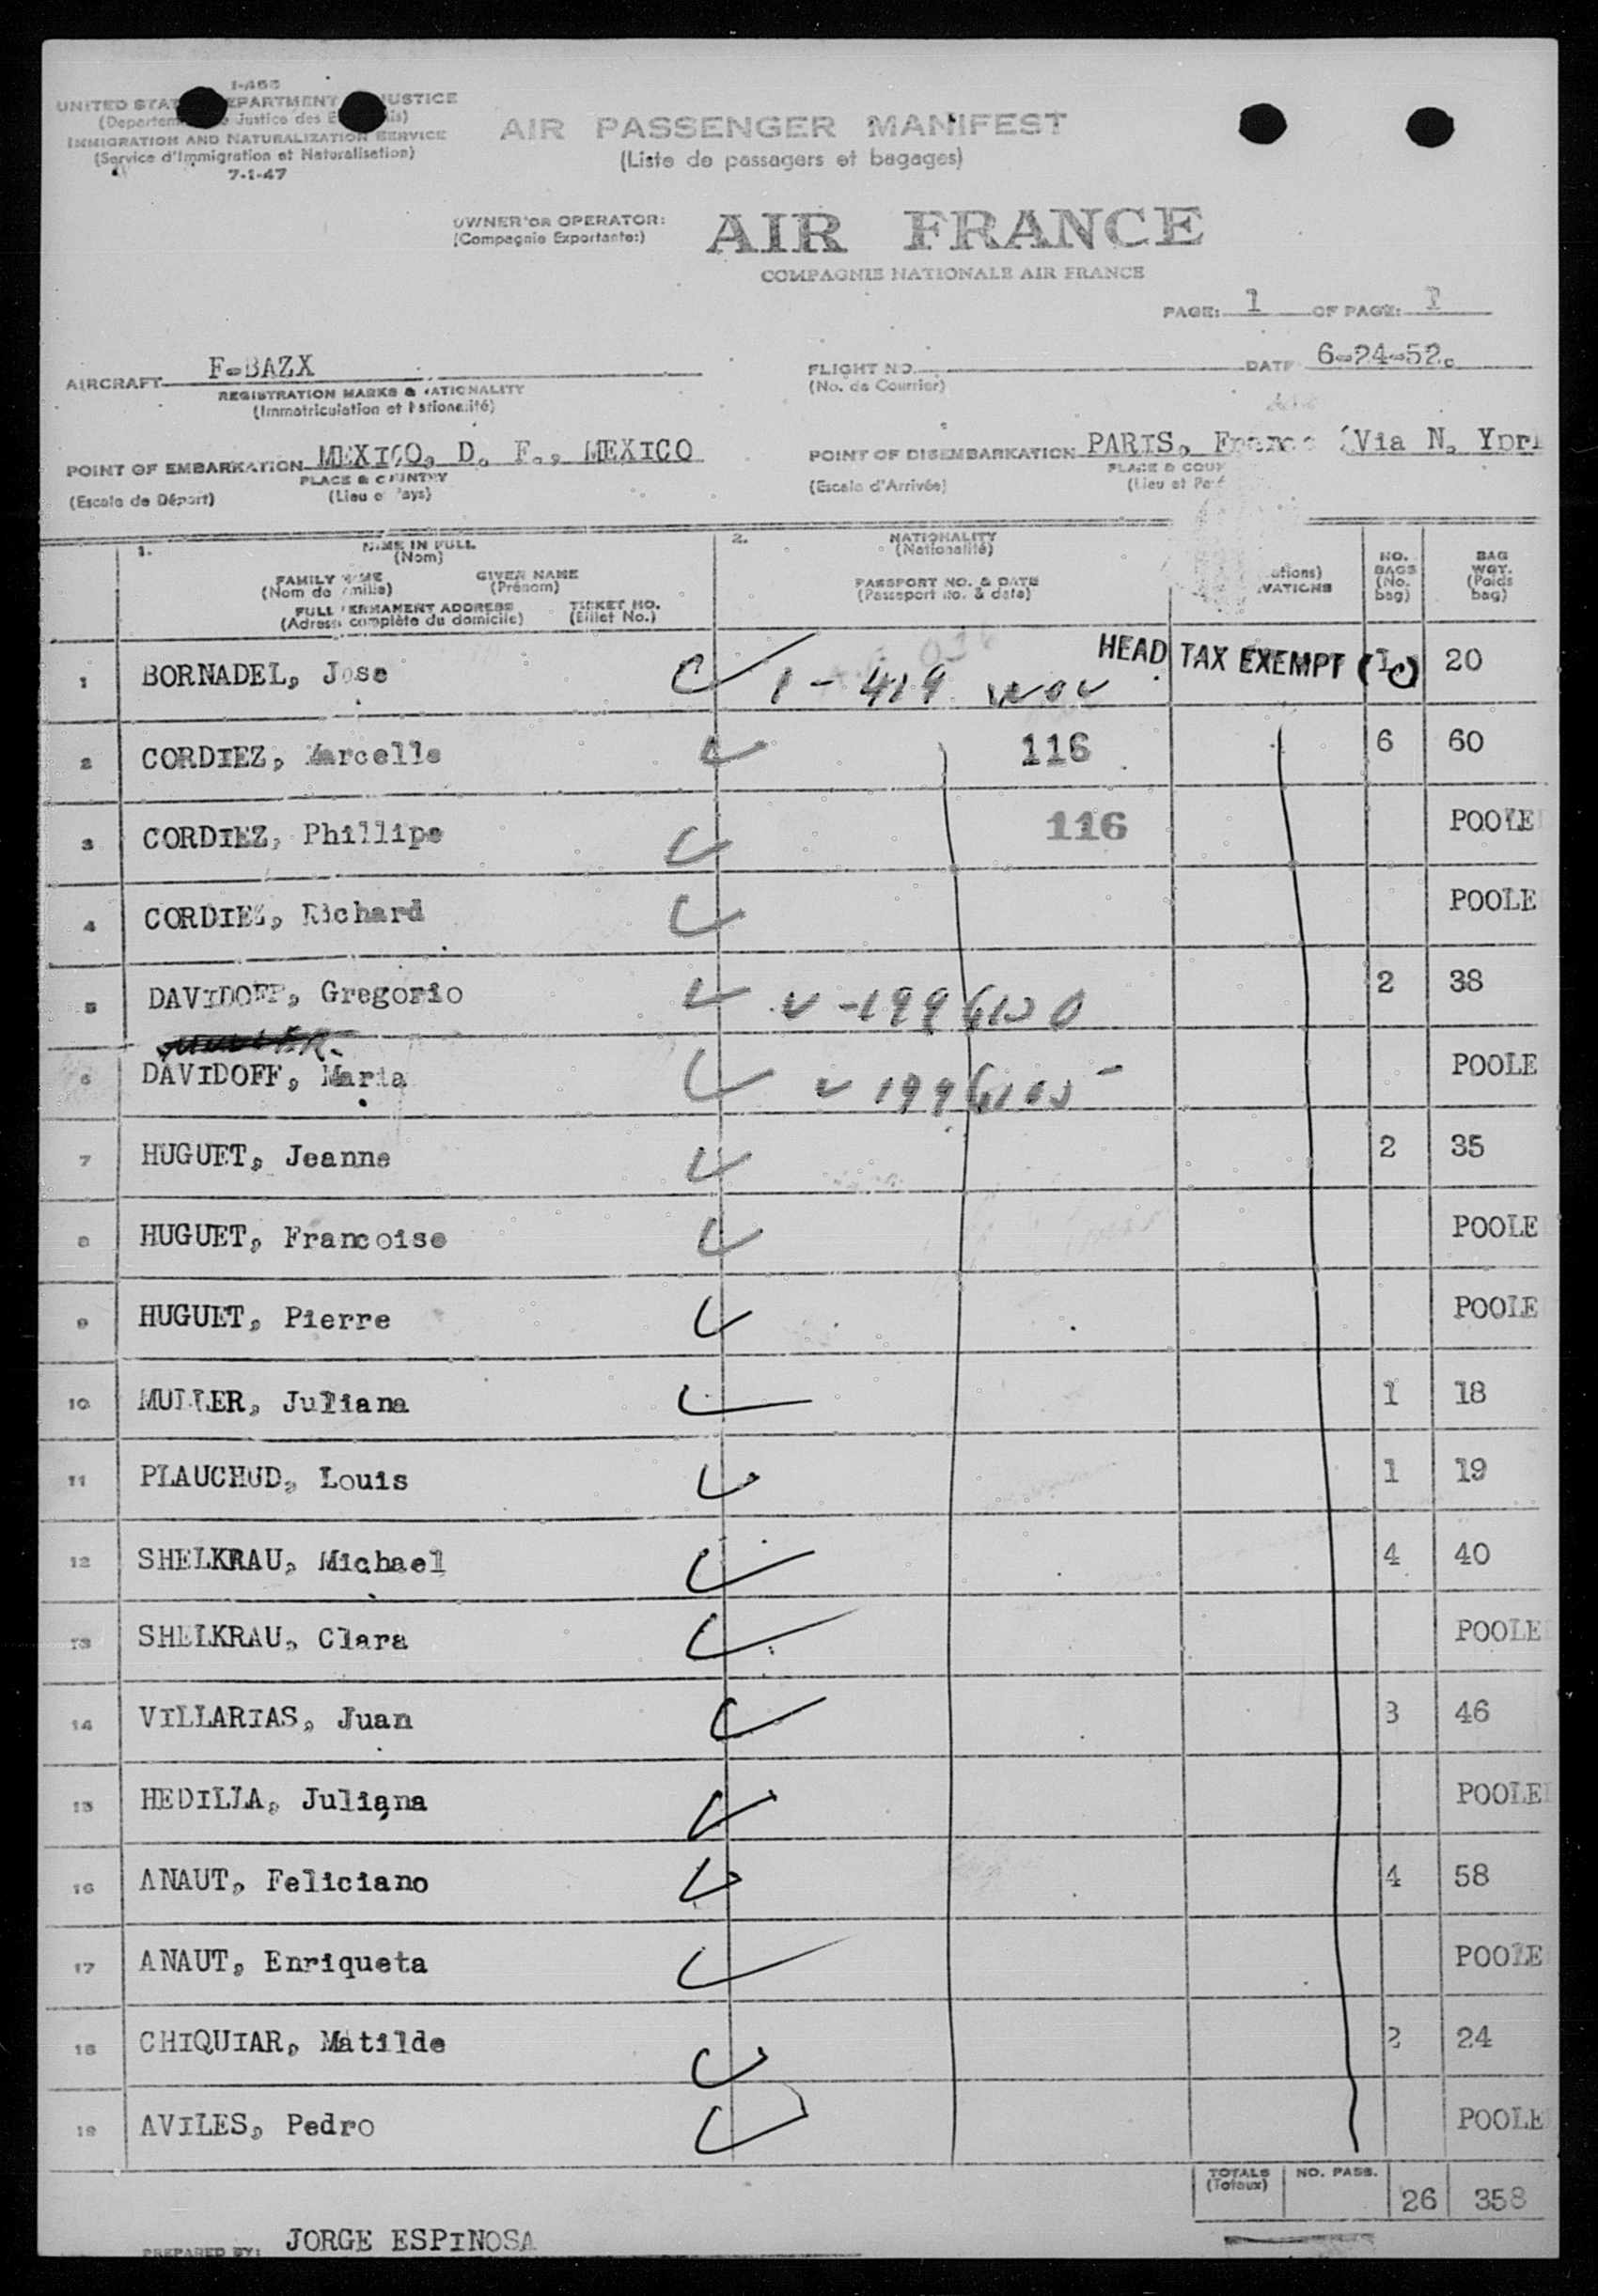 I-466
UNITED STATES DEPARTMENT JUSTICE
(Departem Justice des E is)
IMMIGRATION AND NATURALIZATION SERVICE
(Service d'Immigration et Naturalisation)
7-1-47
AIR PASSENGER MANIFEST
(Liste de passagers et bagages)
OWNER OR OPERATOR:
(Compagnie Exportante:)
AIR FRANCE
COMPAGNIE NATIONALE AIR FRANCE
PAGE: 1 OF PAGE: 1
AIRCRAFT F-BAZX
REGISTRATION MARKS & NATIONALITY
(Immatriculation et Nationalité)
FLIGHT NO.
(No. de Courrier)
DATE 6-24-52.
POINT OF EMBARKATION MEXICO, D. F., MEXICO
PLACE & COUNTRY
(Escale de Départ) (Lieu et Pays)
POINT OF DISEMBARKATION PARIS, France (Via N. Yprl
PLACE & COUN
(Escale d'Arrivée) (Lieu et Pa
1. NAME IN FULL
(Nom)
FAMILY NAME GIVEN NAME
(Nom de famille) (Prénom)
FULL PERMANENT ADDRESS TICKET NO.
(Adresse complète du domicile) (Billet No.)
2. NATIONALITY
(Nationalité)
PASSPORT NO. & DATE
(Passeport No. & date)
ations)
VATIONS
NO.
BAGS
(No.
bag)
BAG
WGT.
(Poids
bag)
1 BORNADEL, Jose 1-419 HEAD TAX EXEMPT (10) 20
2 CORDIEZ, Marcelle 116 6 60
3 CORDIEZ, Phillipe 116 POOLE
4 CORDIEZ, Richard POOLE
5 DAVIDOFF, Gregorio 2 38
6 DAVIDOFF, Maria POOLE
7 HUGUET, Jeanne 2 35
8 HUGUET, Francoise POOLE
9 HUGUET, Pierre POOLE
10 MULLER, Juliana 1 18
11 PLAUCHUD, Louis 1 19
12 SHELKRAU, Michael 4 40
13 SHELKRAU, Clara POOLE
14 VILLARIAS, Juan 3 46
15 HEDILLA, Juliana POOLE
16 ANAUT, Feliciano 4 58
17 ANAUT, Enriqueta POOLE
18 CHIQUIAR, Matilde 2 24
19 AVILES, Pedro POOLE
TOTALS NO. PASS.
(Totaux)
26 358
PREPARED BY: JORGE ESPINOSA